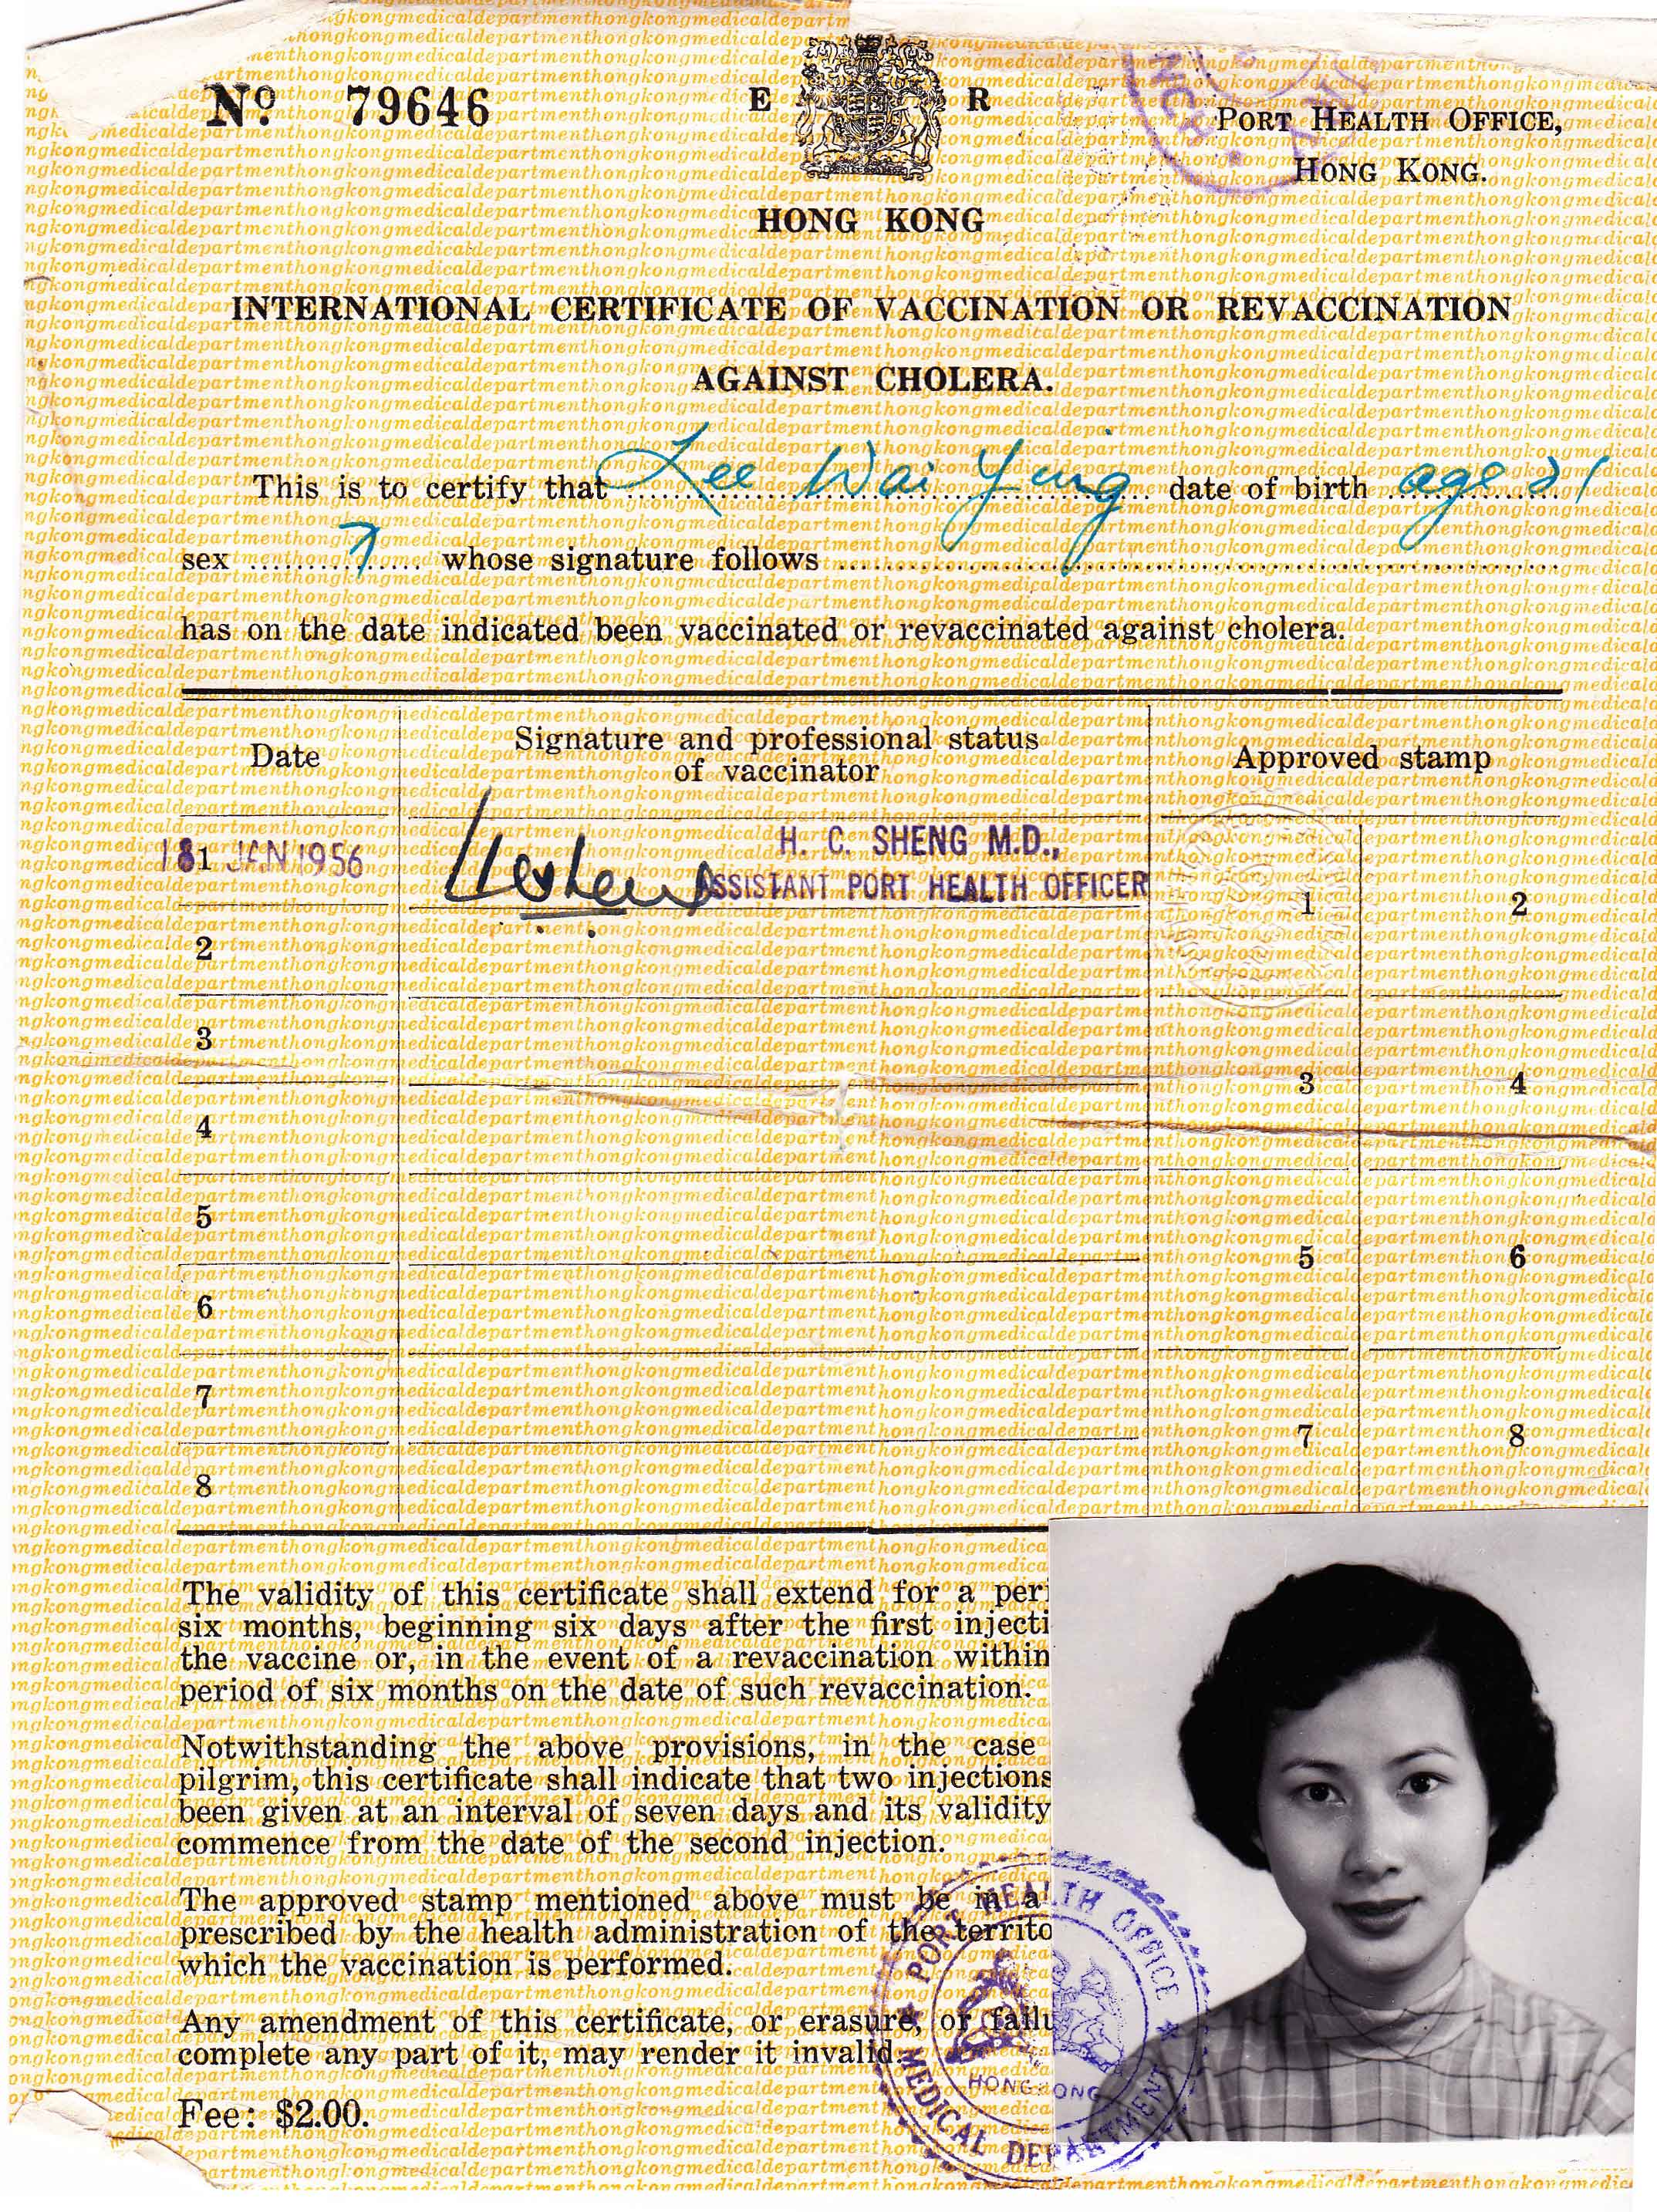 Nº 79646
E R
PORT HEALTH OFFICE,
HONG KONG.
HONG KONG
INTERNATIONAL CERTIFICATE OF VACCINATION OR REVACCINATION
AGAINST CHOLERA.
This is to certify that Lee Wai Yung date of birth age 21
sex F whose signature follows
has on the date indicated been vaccinated or revaccinated against cholera.
Date
Signature and professional status
of vaccinator
Approved stamp
1 18 JAN 1956
H. C. SHENG M.D.,
ASSISTANT PORT HEALTH OFFICER
1 2
2
3
3 4
4
5
5 6
6
7
7 8
8
The validity of this certificate shall extend for a peri
six months, beginning six days after the first injecti
the vaccine or, in the event of a revaccination within
period of six months on the date of such revaccination.
Notwithstanding the above provisions, in the case
pilgrim, this certificate shall indicate that two injections
been given at an interval of seven days and its validity
commence from the date of the second injection.
The approved stamp mentioned above must be in a
prescribed by the health administration of the territo
which the vaccination is performed.
Any amendment of this certificate, or erasure, or failu
complete any part of it, may render it invalid.
Fee: $2.00.
PORT HEALTH OFFICE
HONG KONG
MEDICAL DEPARTMENT